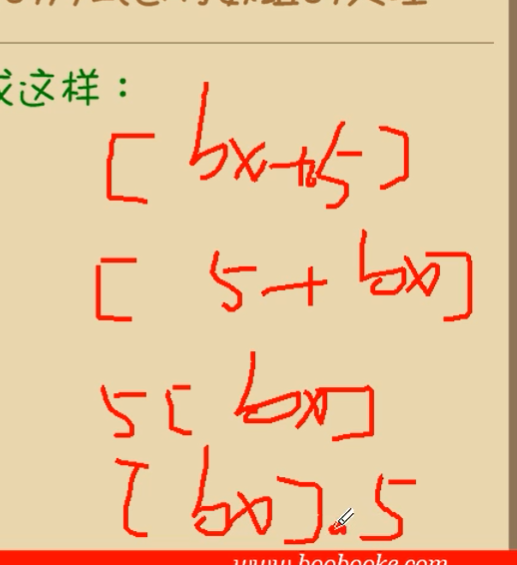 成这样：
[ bx+5 ]
[ 5+bx]
5[ bx]
[ bx].5
www.boobooke.com